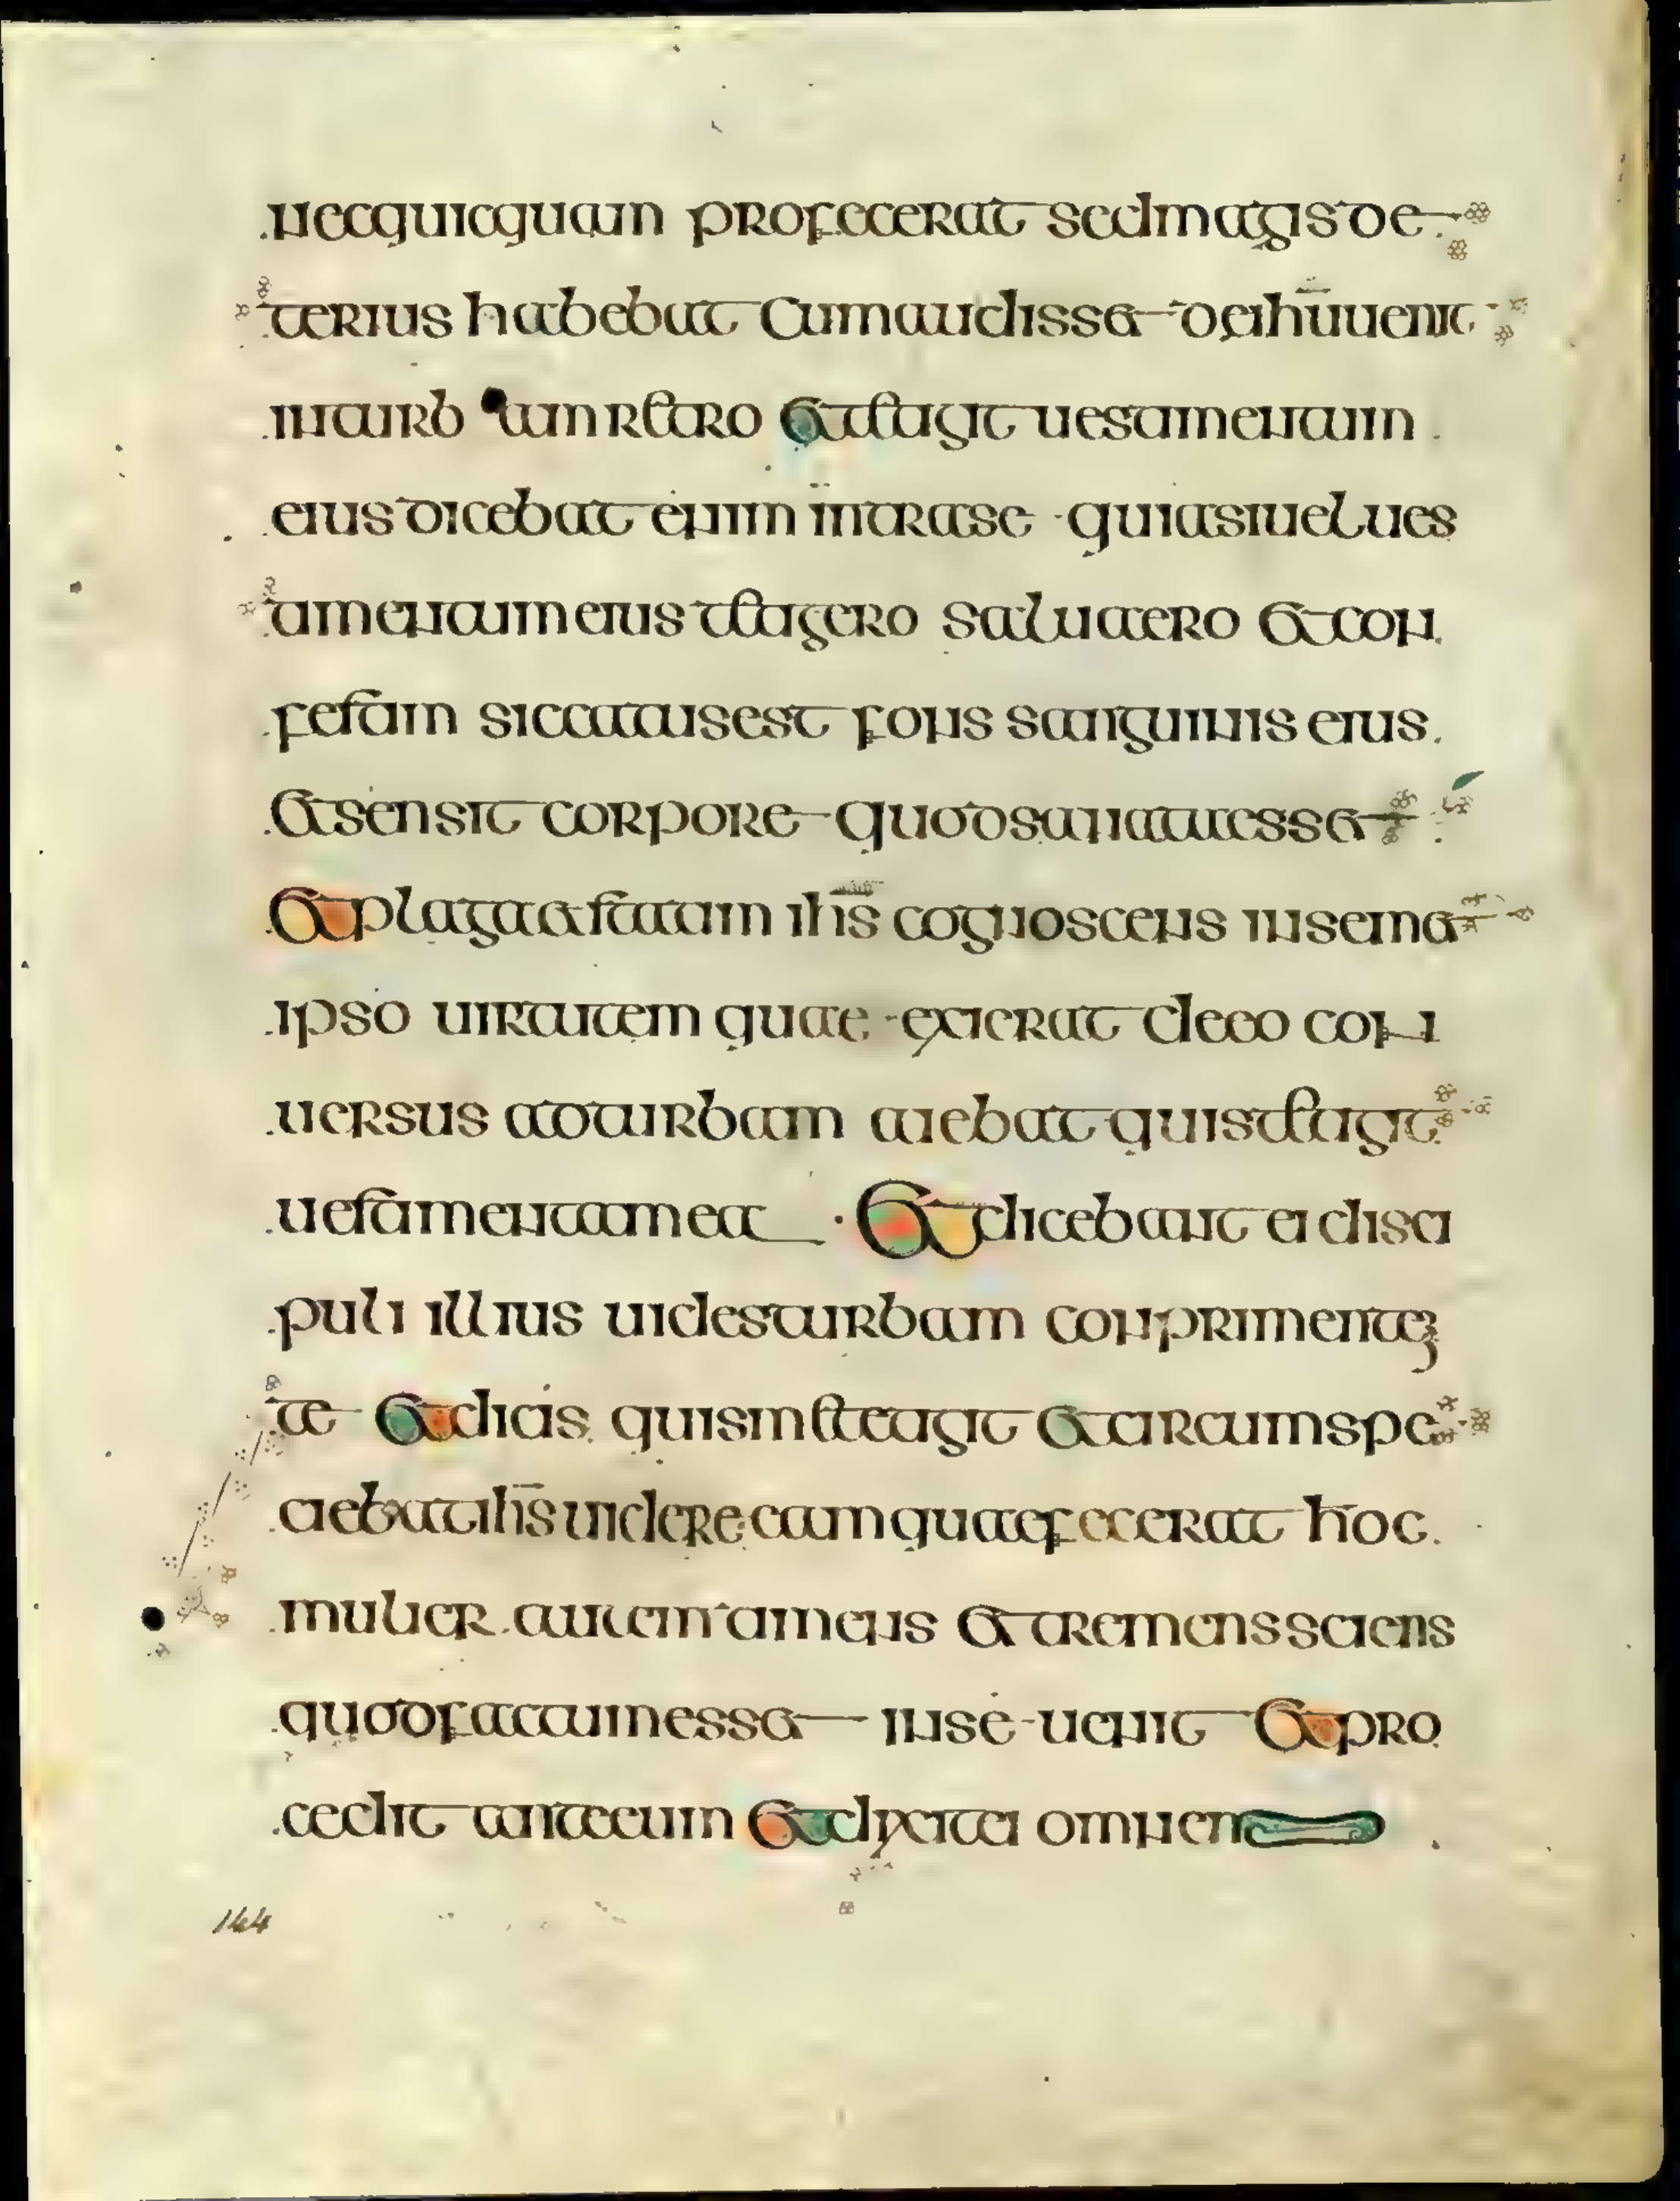 necquicquam profecerat sed magis de
terius habebat Cum audisset de ihū uenit
in turbam retro Et tetigit uestimentum
eius dicebat enim intra se quia si uel ues
timentum eius tetigero salua ero et con
festim siccatus est fons sanguinis eius
Et sensit corpore quod sanata esset
Et plaga et statim ihs cognoscens in semet
ipso uirtutem quae exierat de eo con
uersus ad turbam aiebat quis tetigit
uestimenta mea Et dicebant ei disci
puli illius uides turbam conprimentem
te Et dicis quis me tetigit Et circumspi
ciebat ihs uidere eam quae fecerat hoc
mulier autem timens Et tremens sciens
quod factum esset in se uenit Et pro
cedit ante eum Et dixit ei omnem
144